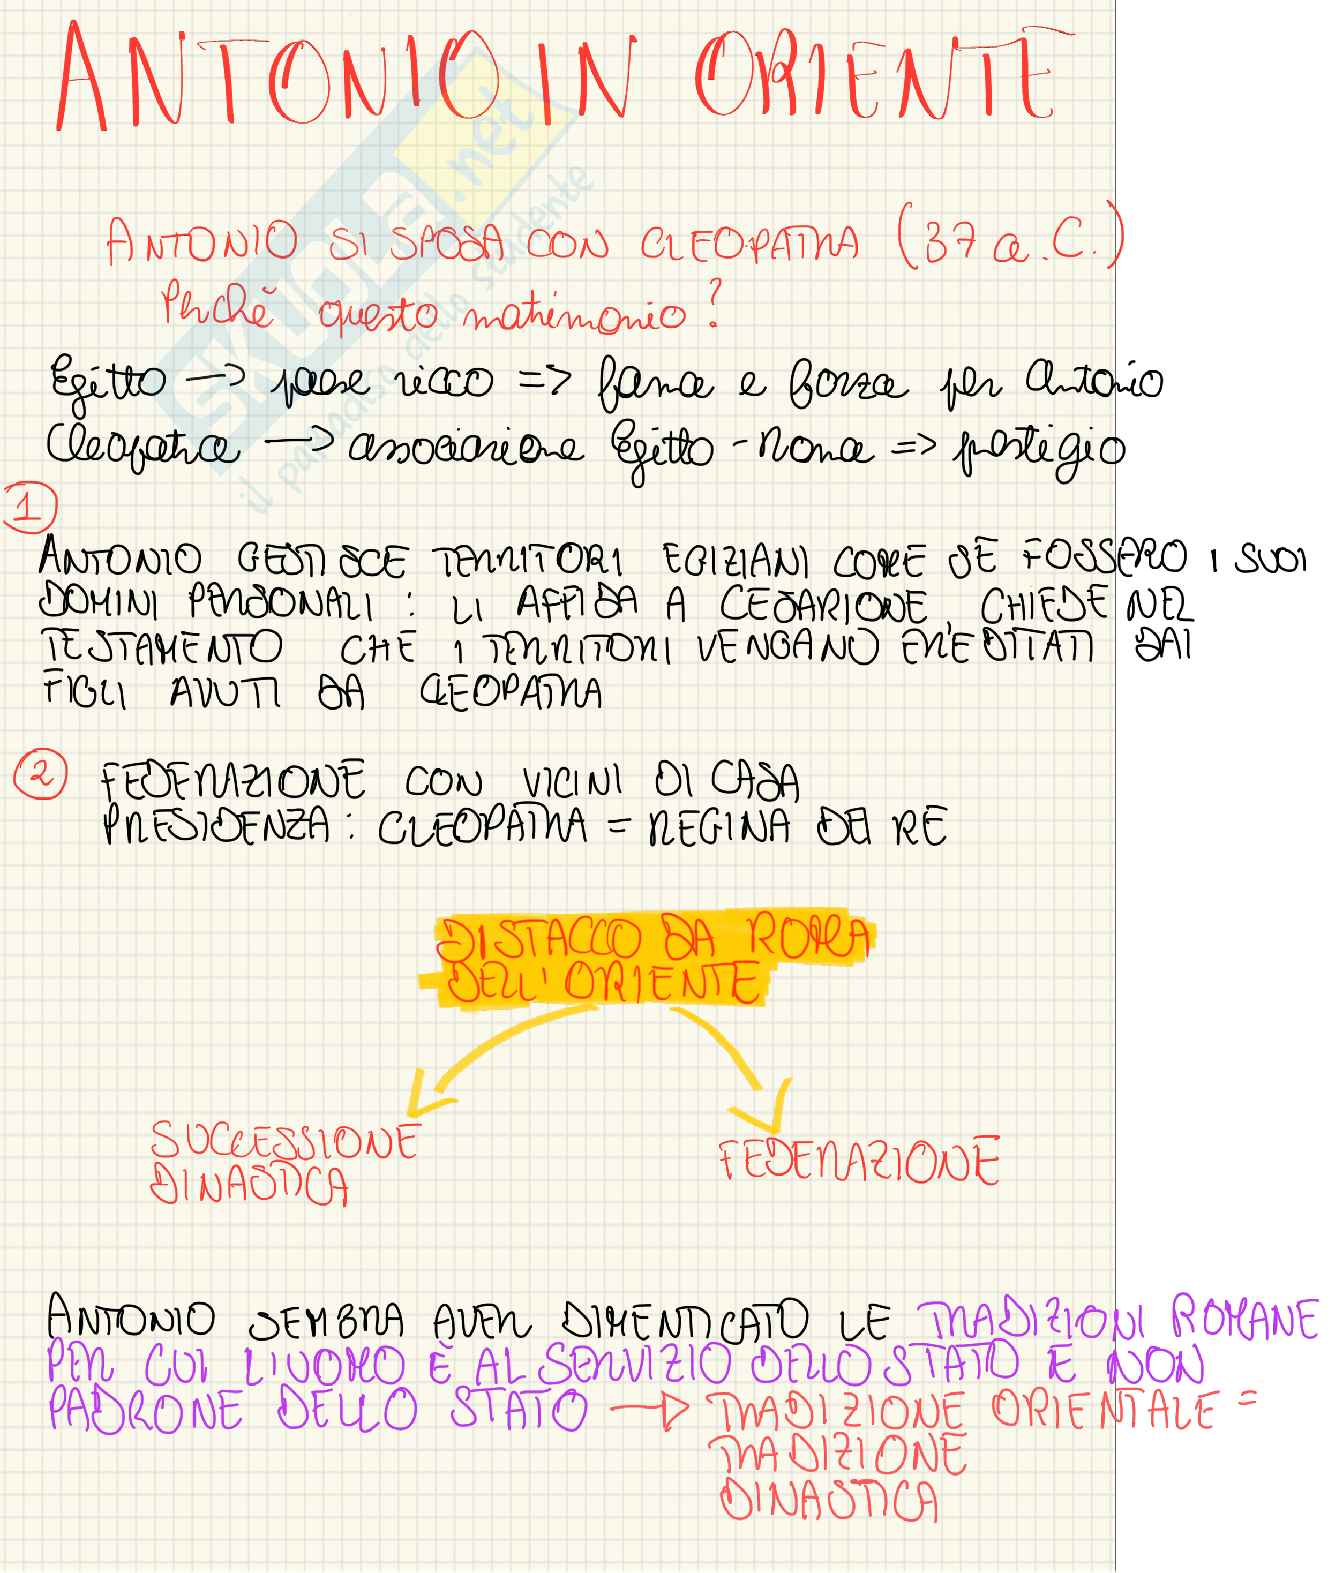 ANTONIO IN ORIENTE
SKUOLA.net
il paradiso dello studente
ANTONIO SI SPOSA CON CLEOPATRA (37 a.C.)
Perchè questo matrimonio?
Egitto -> paese ricco => fama e forza per Antonio
Cleopatra -> associazione Egitto-Roma => prestigio
1
ANTONIO GESTISCE TERRITORI EGIZIANI COME SE FOSSERO I SUOI
DOMINI PERSONALI: LI AFFIDA A CESARIONE, CHIEDE NEL
TESTAMENTO CHE I TERRITORI VENGANO EREDITTATI DAI
FIGLI AVUTI DA CLEOPATRA
2 FEDERAZIONE CON VICINI DI CASA
PRESIDENZA: CLEOPATRA = REGINA DEI RE
DISTACCO DA ROMA
DELL'ORIENTE
SUCCESSIONE
DINASTICA
FEDERAZIONE
ANTONIO SEMBRA AVER DIMENTICATO LE TRADIZIONI ROMANE
PER CUI L'UOMO È AL SERVIZIO DELLO STATO E NON
PADRONE DELLO STATO -> TRADIZIONE ORIENTALE =
TRADIZIONE
DINASTICA